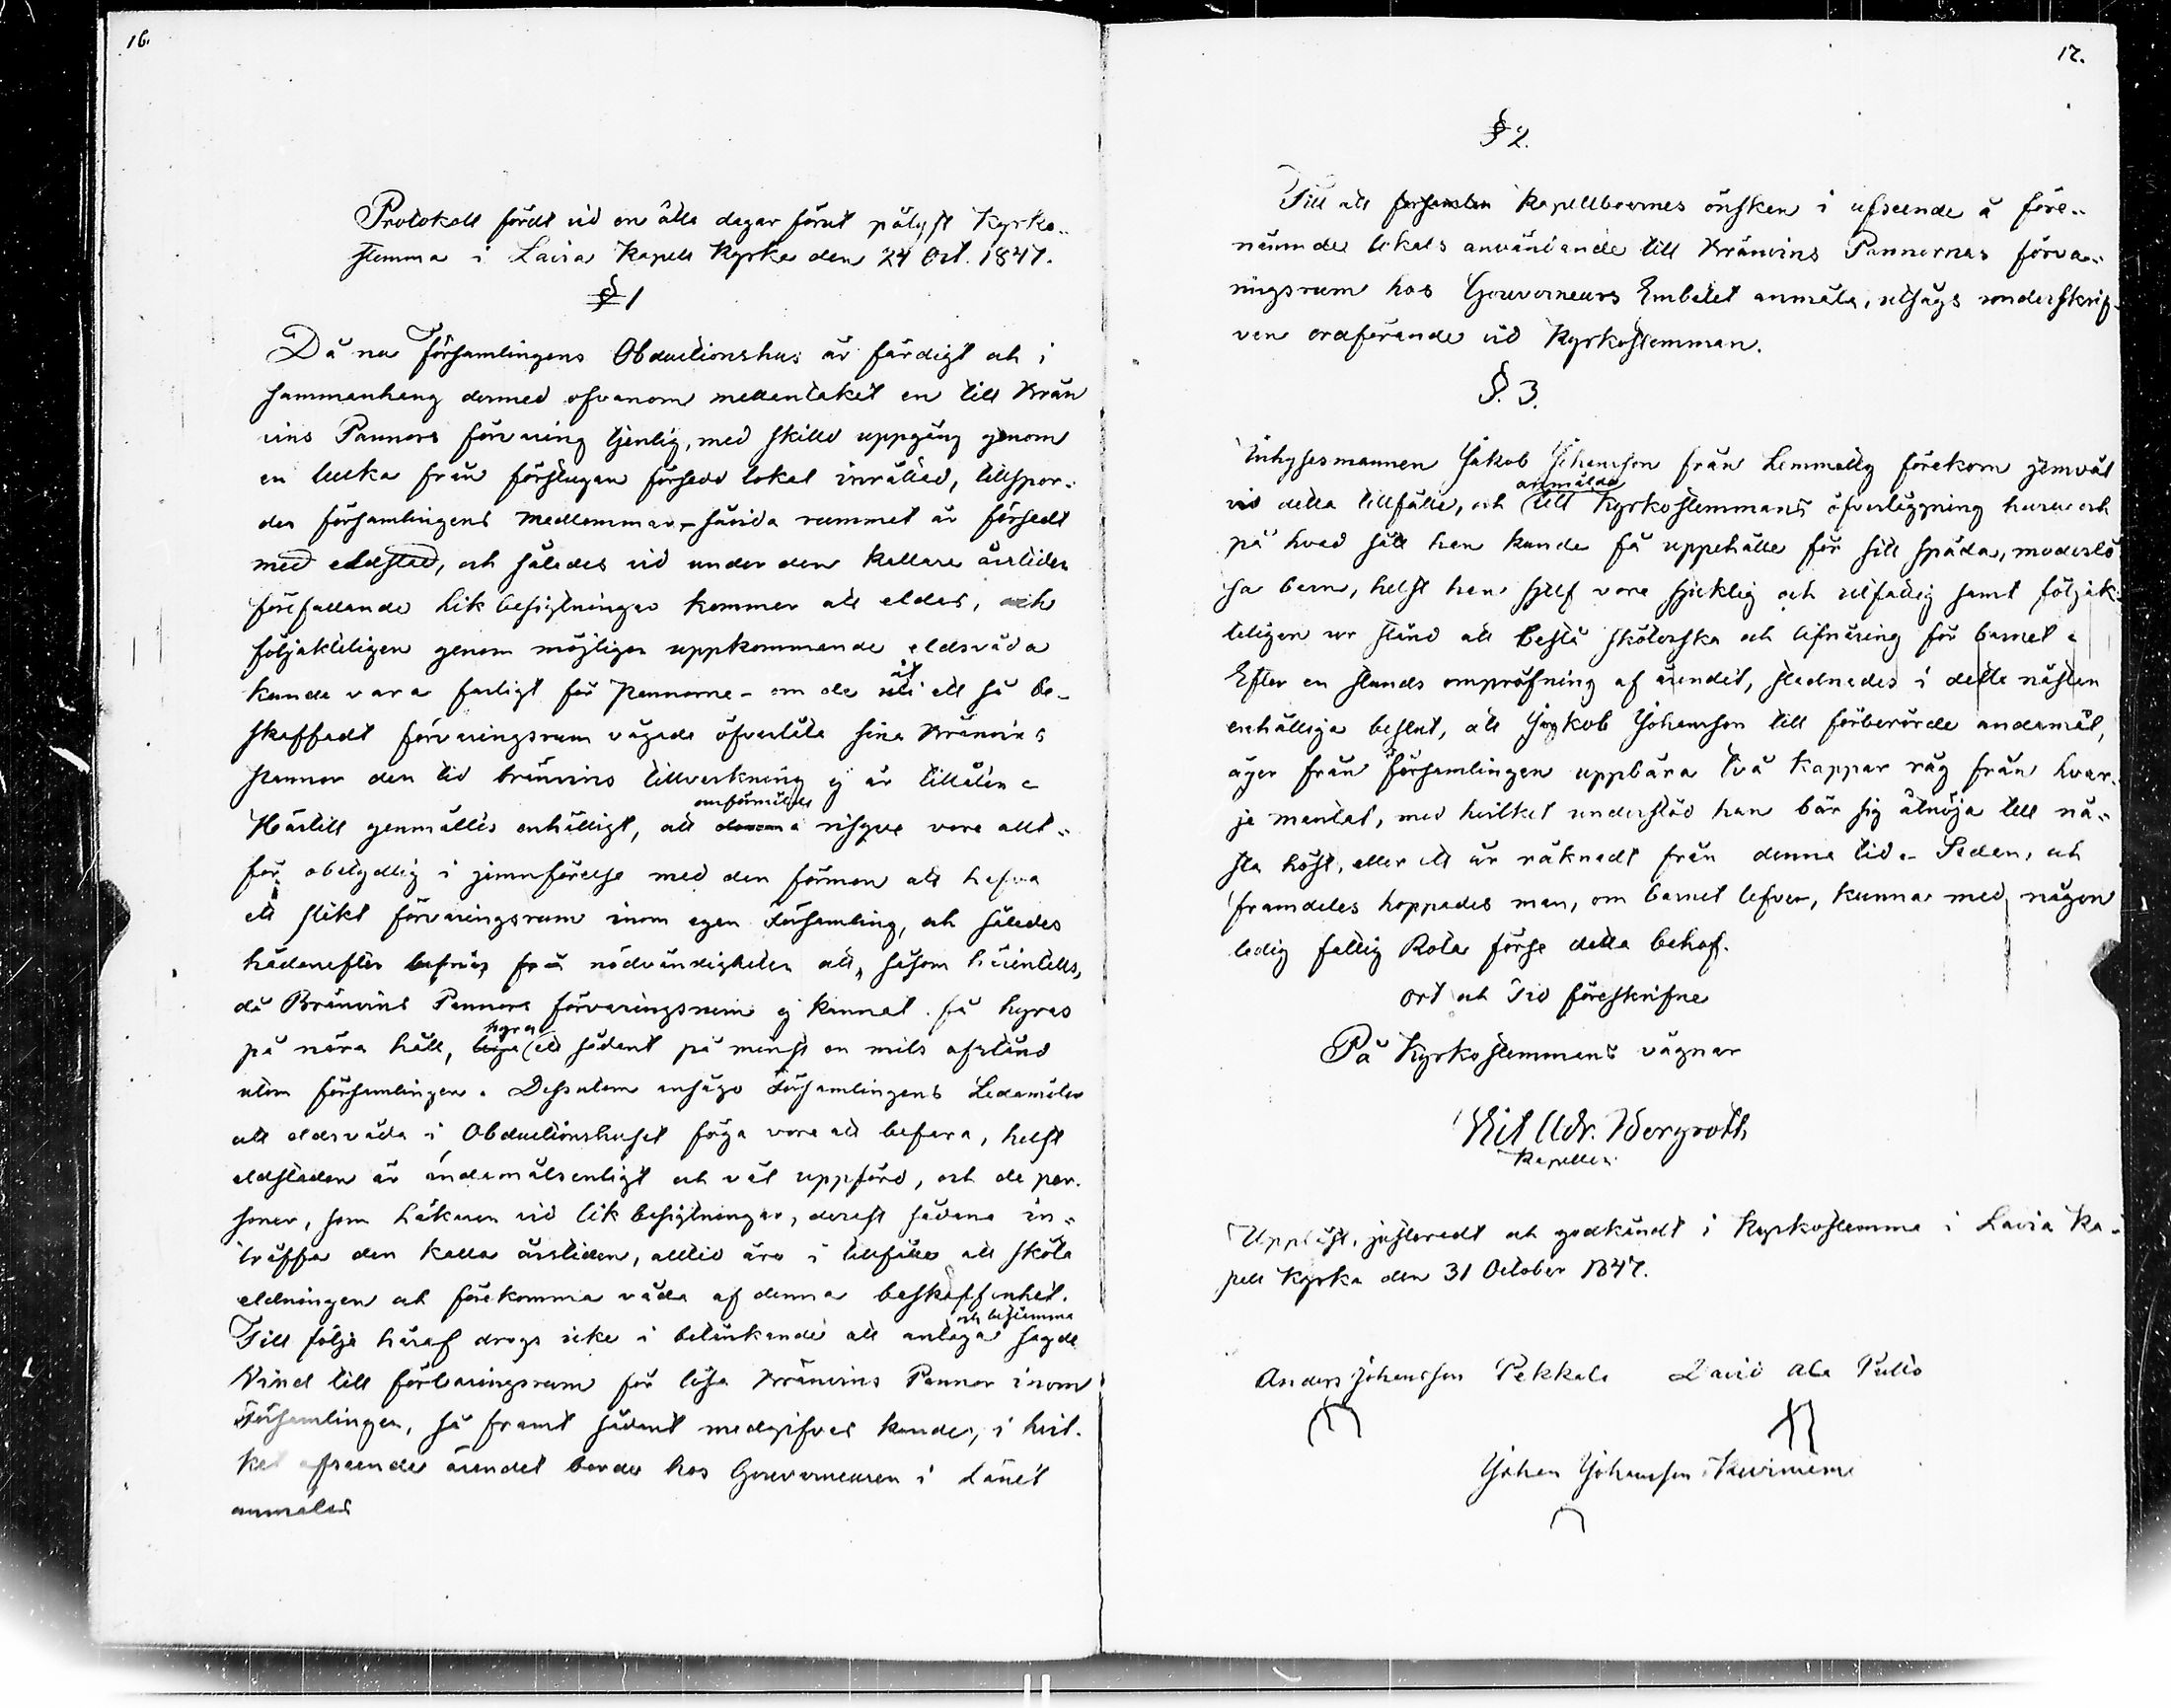 16.
Protokoll fördt vid en åtta dagar förut pålyst Kyrko-
stemma i Lavia Kapells Kyrka den 24 Oct. 1847.
§ 1
Då nu Församlingens Obductionshus är färdigt och i
sammanhang dermed ofvanom mellantaket en till Brän
vins Pannors förvaring tjenlig, med skilld uppgång genom
en lucka från förstugan försedd lokal inrättad, tillspor-
des församlingens medlemmar, såvida rummet är försedt
med eldstad, och således vid under den kallare årstiden
förefallande likbesigtningar kommer att eldas, och
följakteligen genom möjligen uppkommande eldsvåda
kunde vara farligt för pannorne - om de åt ett så be-
skaffadt förvaringsrum vågade öfverlåta sina Bränvins
pannor den tid bränvins tillverkning ej är tillåten.
Härtill genmältes enhälligt, att omförmälde risque vore allt-
för obetydlig i jemnförelse med den förmon att hafva
ett slikt förvaringsrum inom egen Församling, och således
hädanefter befrias från nödvändigheten att, såsom härintills,
då Bränvins Pannors förvaringsrum ej kunnat få hyras
på nära håll, hyra ett sådant på minst en mils afstånd
utom församlingen. Dessutom ansågo Församlingens Ledamöter
att eldsvåda i Obductionshuset föga vore att befara, helst
eldstaden är ändamålsenligt och väl uppförd, och de per-
soner, som håkuren vid likbesigtningar, derest sådana in-
träffa den kalla årstiden, alltid äro i tillfälle att sköta
eldningen och förekomma våda af denna beskaffenhet.
Till följe häraf drogs icke i betänkande att antaga och bestämma sagde
Vind till förvaringsrum för lösa Bränvins Pannor inom
Församlingen, så framt sådant medgifvas kunde, i hvil-
ket afseende ärendet borde hos Gouverneuren i Länet
anmälas
17.
§ 2.
Till att Kapellboernes önskan i afseende å före-
nämnde lokals användande till Bränvins Pannornas förva-
ringsrum hos Gouverneurs Embetet anmäla, utsågs undertskrif-
ven ordförande vid Kyrkostemman.
§. 3.
Inhysesmannen Jakob Johansson från Lemmetty förekom jemväl
vid detta tillfälle, och anmälde till Kyrkostemmans öfverläggning huru och
på hvad sätt han kunde få uppehälle för sitt späda, moderlö
sa barn, helst han sjelf vore sjuklig och utfattig samt följak-
teligen ur stånd att bestå sköterska och lifnäring för barnet.
Efter en stunds ompröfning af ärendet, stadnades i detta nästen
enhälliga beslut, att Jakob Johansson till förberörde ändamål,
äger från Församlingen uppbära två kappar råg från hvar-
je mantal, med hvilket understöd han bör sig åtnöja till nä-
sta höst, eller ett år räknadt från denna tid. Sedan, och
framdeles hoppades man, om barnet lefver, kunna med någon
ledig fattig Rota förse detta behof.
Ort och Tid föreskrifne
På Kyrkostemmans vägnar
Wit Adr. Bergroth
Kapellan
Uppläst, justeradt och godkändt i Kyrkostemma i Lavia Ka-
pell Kyrka den 31 October 1847.
Anders Johansson Pekkala David Ala Pullo
Johan Johansson Kuvinieme